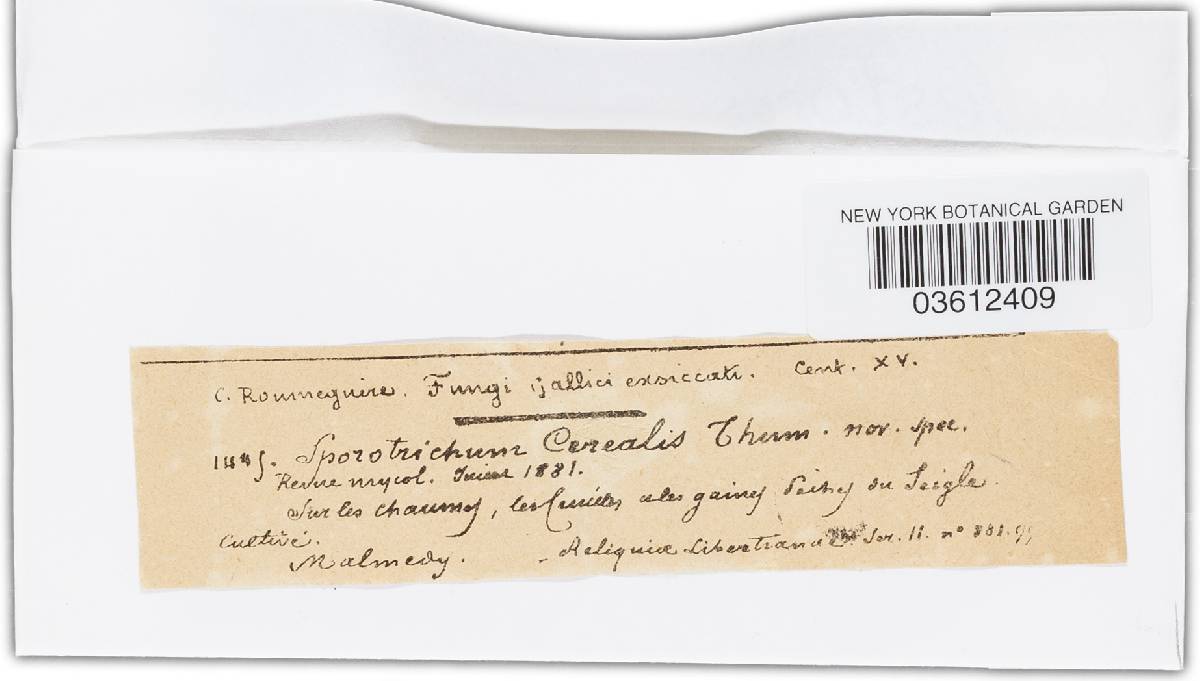 NEW YORK BOTANICAL GARDEN
03612409
C. Roumeguire. Fungi gallici exsiccati. Cent. XV.
Sporotrichum Cerealis Thum. nov. spec.
Revue mycol. 1881.
Sur les chaumes, les feuilles et les gaines du Seigle
Cultivé.
Malmedy. - Reliquiæ Libertianæ Ser. II. nº 881.